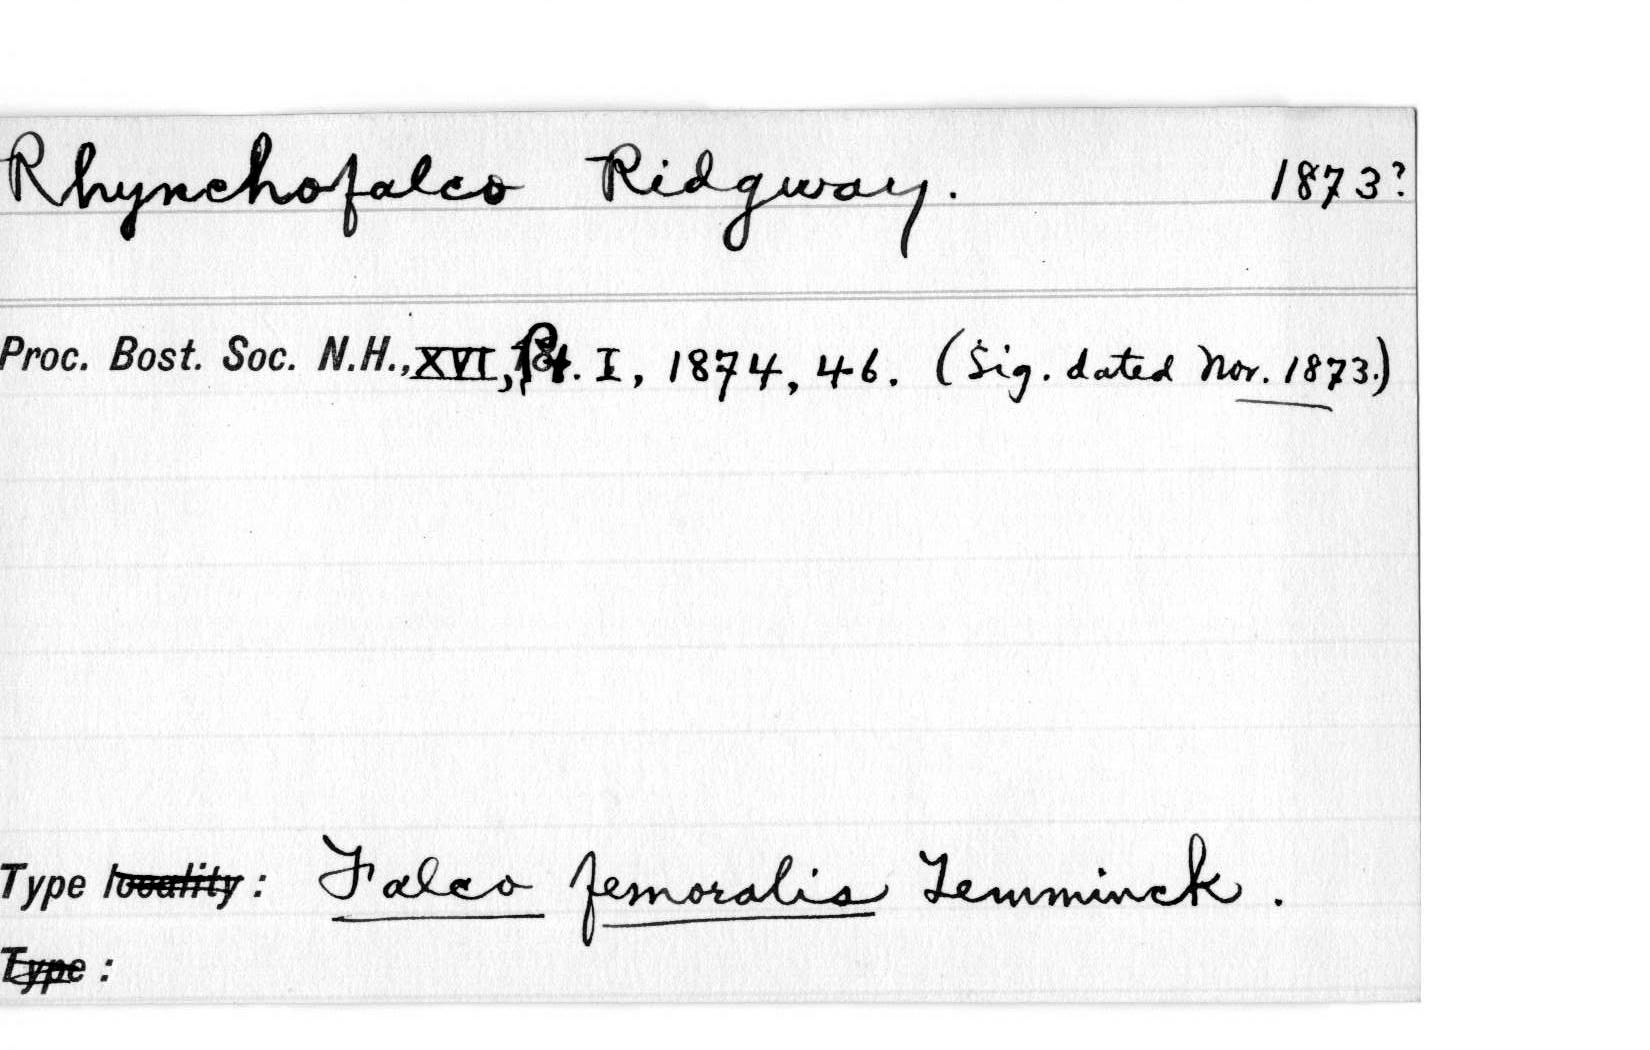 Rhynchofalco Ridgway. 1873?
Proc. Bost. Soc. N.H., XVI, Pt. I, 1874, 46. (Sig. dated Nov. 1873.)
Type locality: Falco femoralis Temminck.
Type: